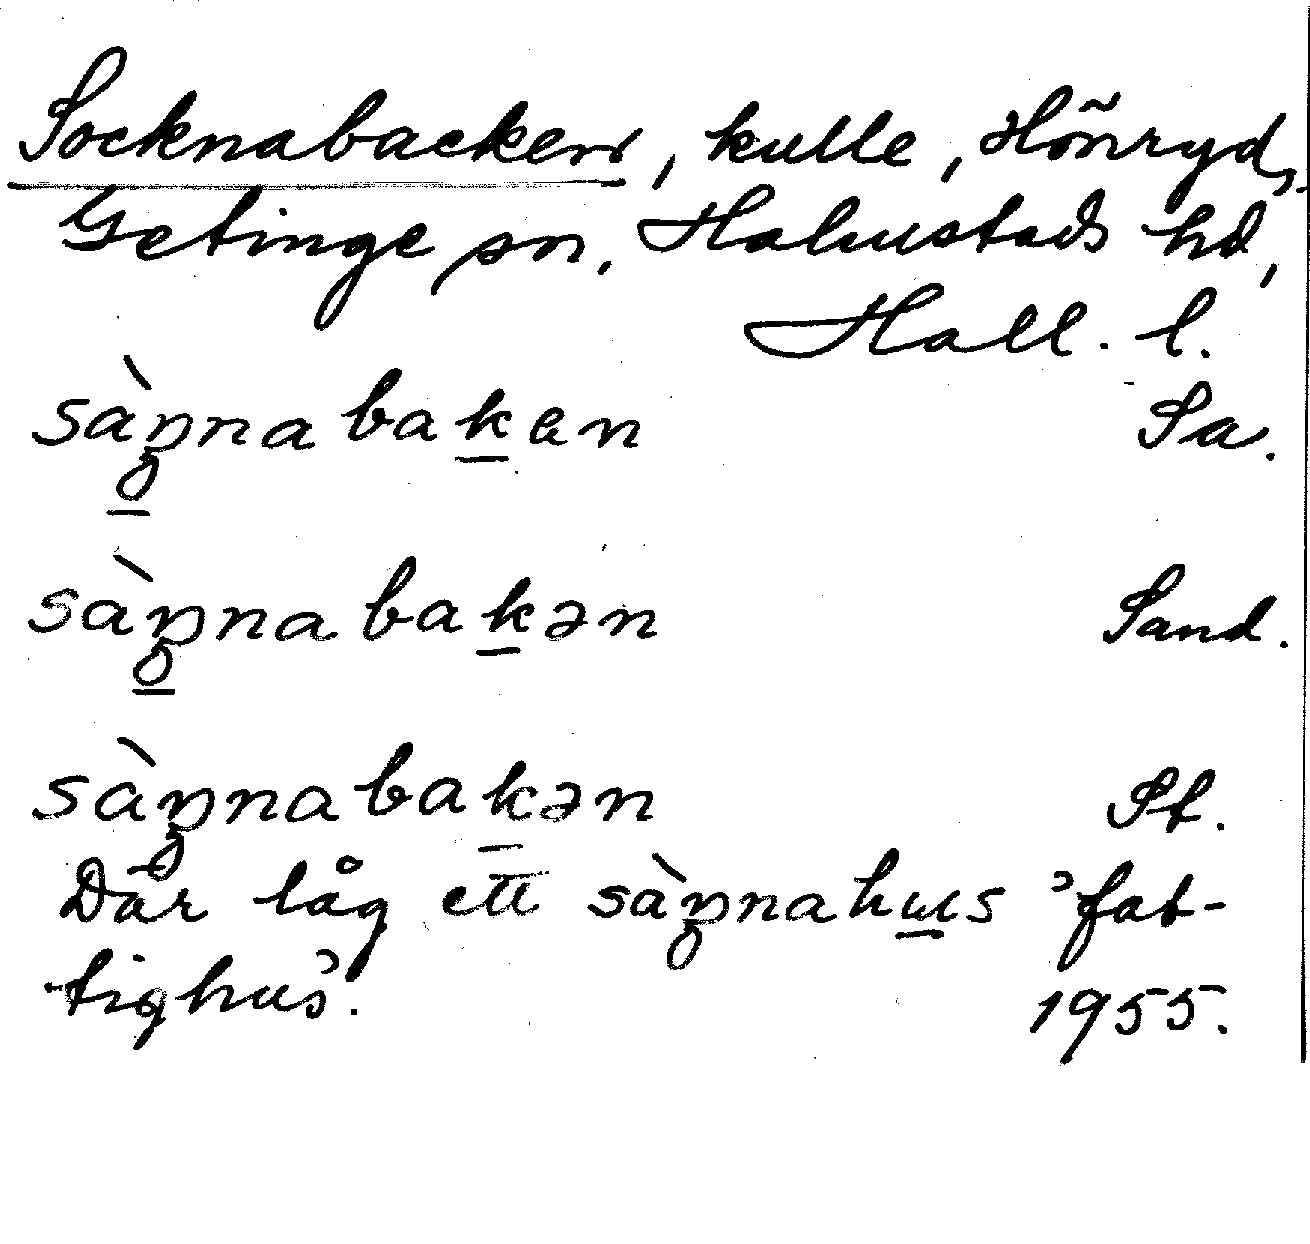 Socknabacken, kulle, Hönryd,
Getinge sn, Halmstads hd,
Hall. l.
sàŋnabakan Sa.
sàŋnabakən Sand.
sàŋnabakən St.
Där låg ett sàŋnahus ’fat-
tighus’. 1955.